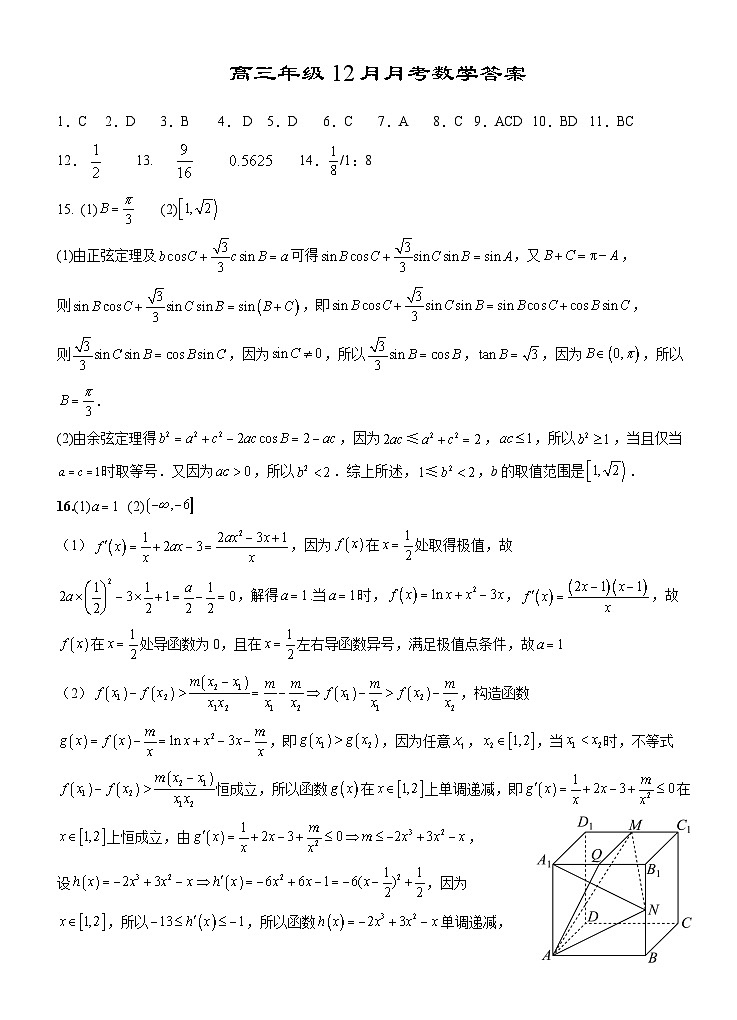 高三年级12月月考数学答案
1．C 2．D 3．B 4．D 5．D 6．C 7．A 8．C 9．ACD 10．BD 11．BC
12． 1/2 13. 9/16 0.5625 14．1/8/1:8
15. (1) B = π/3 (2) [1, √2)
(1)由正弦定理及 b cos C + (√3/3) c sin B = a 可得 sin B cos C + (√3/3) sin C sin B = sin A，又 B + C = π − A，
则 sin B cos C + (√3/3) sin C sin B = sin (B + C)，即 sin B cos C + (√3/3) sin C sin B = sin B cos C + cos B sin C，
则 (√3/3) sin C sin B = cos B sin C，因为 sin C ≠ 0，所以 (√3/3) sin B = cos B，tan B = √3，因为 B ∈ (0, π)，所以
B = π/3．
(2)由余弦定理得 b² = a² + c² − 2ac cos B = 2 − ac，因为 2ac ≤ a² + c² = 2，ac ≤ 1，所以 b² ≥ 1，当且仅当
a = c = 1时取等号．又因为 ac > 0，所以 b² < 2．综上所述，1 ≤ b² < 2，b 的取值范围是 [1, √2)．
16.(1) a = 1 (2) (−∞, −6]
（1）f′(x) = 1/x + 2ax − 3 = (2ax² − 3x + 1)/x，因为 f(x) 在 x = 1/2 处取得极值，故
2a × (1/2)² − 3 × 1/2 + 1 = a/2 − 1/2 = 0，解得 a = 1 .当 a = 1 时，f(x) = ln x + x² − 3x，f′(x) = (2x − 1)(x − 1)/x，故
f(x) 在 x = 1/2 处导函数为 0，且在 x = 1/2 左右导函数异号，满足极值点条件，故 a = 1
（2）f(x₁) − f(x₂) > m(x₂ − x₁)/(x₁x₂) = m/x₁ − m/x₂ ⇒ f(x₁) − m/x₁ > f(x₂) − m/x₂，构造函数
g(x) = f(x) − m/x = ln x + x² − 3x − m/x，即 g(x₁) > g(x₂)，因为任意 x₁，x₂ ∈ [1,2]，当 x₁ < x₂ 时，不等式
f(x₁) − f(x₂) > m(x₂ − x₁)/(x₁x₂) 恒成立，所以函数 g(x) 在 x ∈ [1,2] 上单调递减，即 g′(x) = 1/x + 2x − 3 + m/x² ≤ 0 在
x ∈ [1,2] 上恒成立，由 g′(x) = 1/x + 2x − 3 + m/x² ≤ 0 ⇒ m ≤ −2x³ + 3x² − x，
设 h(x) = −2x³ + 3x² − x ⇒ h′(x) = −6x² + 6x − 1 = −6(x − 1/2)² + 1/2，因为
x ∈ [1,2]，所以 −13 ≤ h′(x) ≤ −1，所以函数 h(x) = −2x³ + 3x² − x 单调递减，
D₁ M C₁
A₁ Q B₁
N
D C
A B